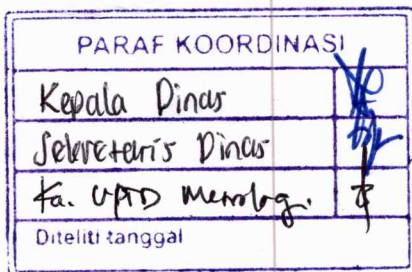 PARAF KOORDINASI
Kepala Dinas
Sekretaris Dinas
Ka. UPTD Metrologi.
Diteliti tanggal